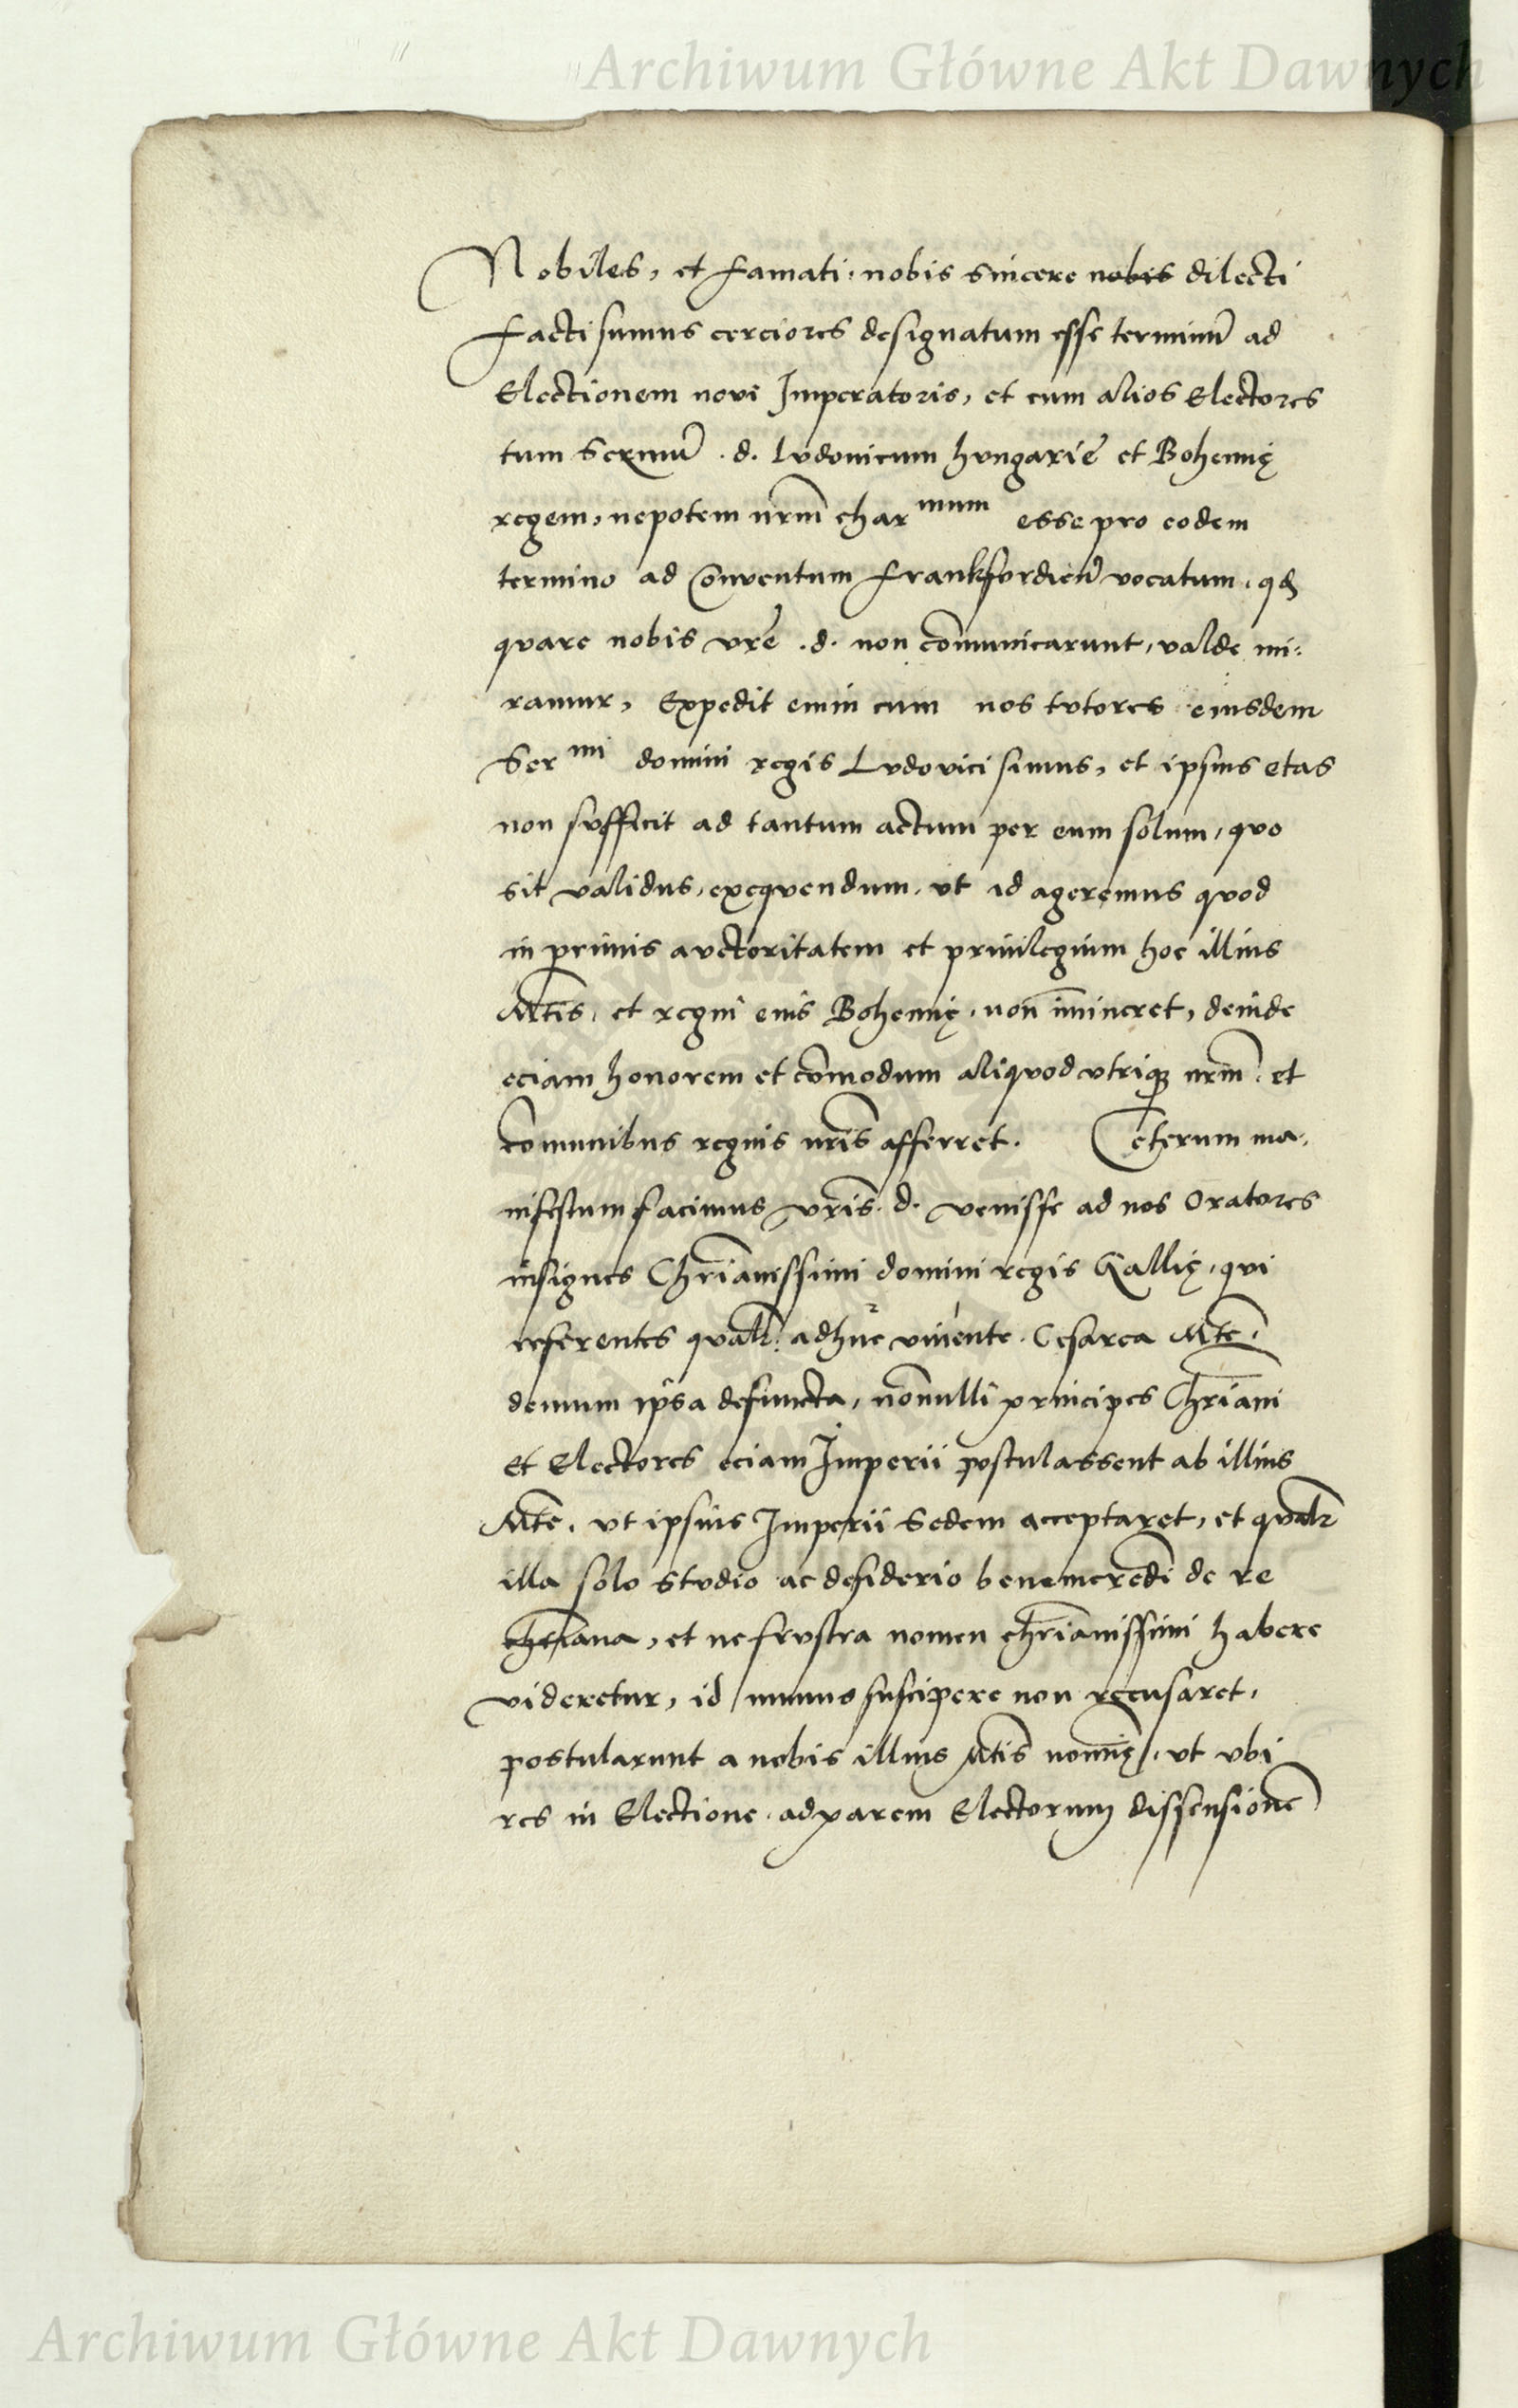 Archiwum Główne Akt Dawnych
Nobiles, et famati, nobis sincere nobis dilecti
facti sumus cerciores designatum esse terminũ ad
Electionem novi Imperatoris, et cum alios Electores
tum Sermũ .d. Lvdovicum hvngariẽ et Bohemię
regem, nepotem nrm̃ char mum esse pro eodem
termino ad Conventum frankfordieñ vocatum, qđ
qvare nobis vrẽ .d. non cõmunicarunt, valde mi:
ramur, Expedit enim cum nos tvtores eiusdem
Ser mi domini regis Lvdovici simus, et ipsius etas
non svfficit ad tantum actum per eum solum, qvo
sit validus, exeqvendum, vt id ageremus qvod
in primis avctoritatem et privilegium hoc illius
Mtis̃, et regni eius Bohemię, noñ im̃ineret, deinde
eciam honorem et cõmodum aliqvod vtriqꝫ nrm̃, et
cõmunibus regnis nris̃ afferret. Ceterum ma-
nifestum facimus vris̃ .d. venisse ad nos Oratores
insignes Chrĩanissimi domini regis Gallię, qvi
referentes qvalr̃ adhuc vivente Cesarea Mte,
demum ip̃sa defuncta, nõnulli principes Chrĩani
et Electores eciam Imperii postulassent ab illius
Mte, vt ipsius Imperii Sedem acceptaret, et qvalr̃
illa solo stvdio ac desiderio benemerẽdi de re
chrĩana, et ne frvstra nomen chrĩanissimi habere
videretur, id munus suscipere non recusaret,
postularunt a nobis illius Mtis̃ nomĩe, vt vbi
res in Electione ad parem Electorum dissensionẽ
Archiwum Główne Akt Dawnych